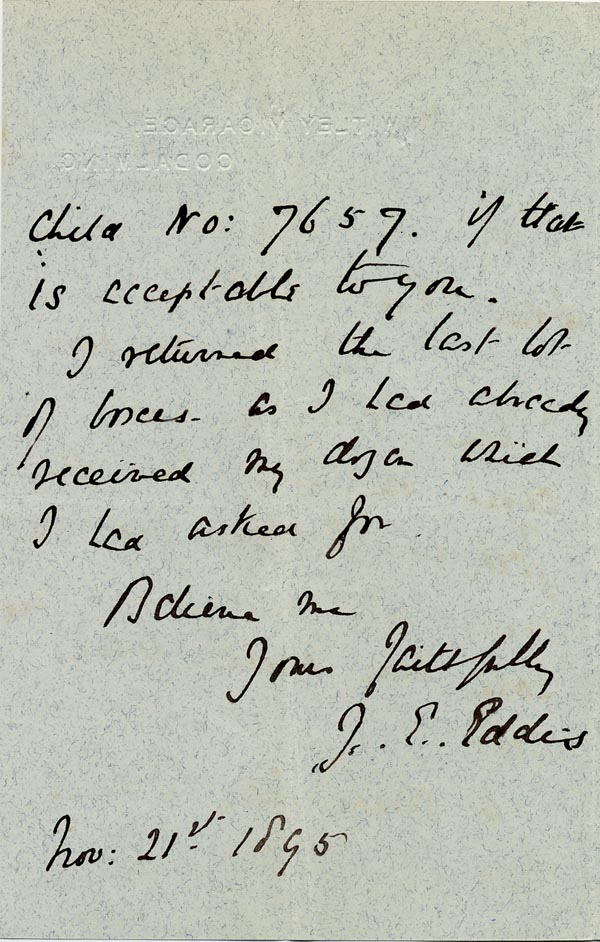 WITLEY VICARAGE,
GODALMING.
Child No: 7657. if that
is acceptable to you.
I returned the last lot
of boxes as I had already
received my dozen which
I had asked for
Believe me
Yours faithfully
J. E. Eddis
Nov: 21st 1895